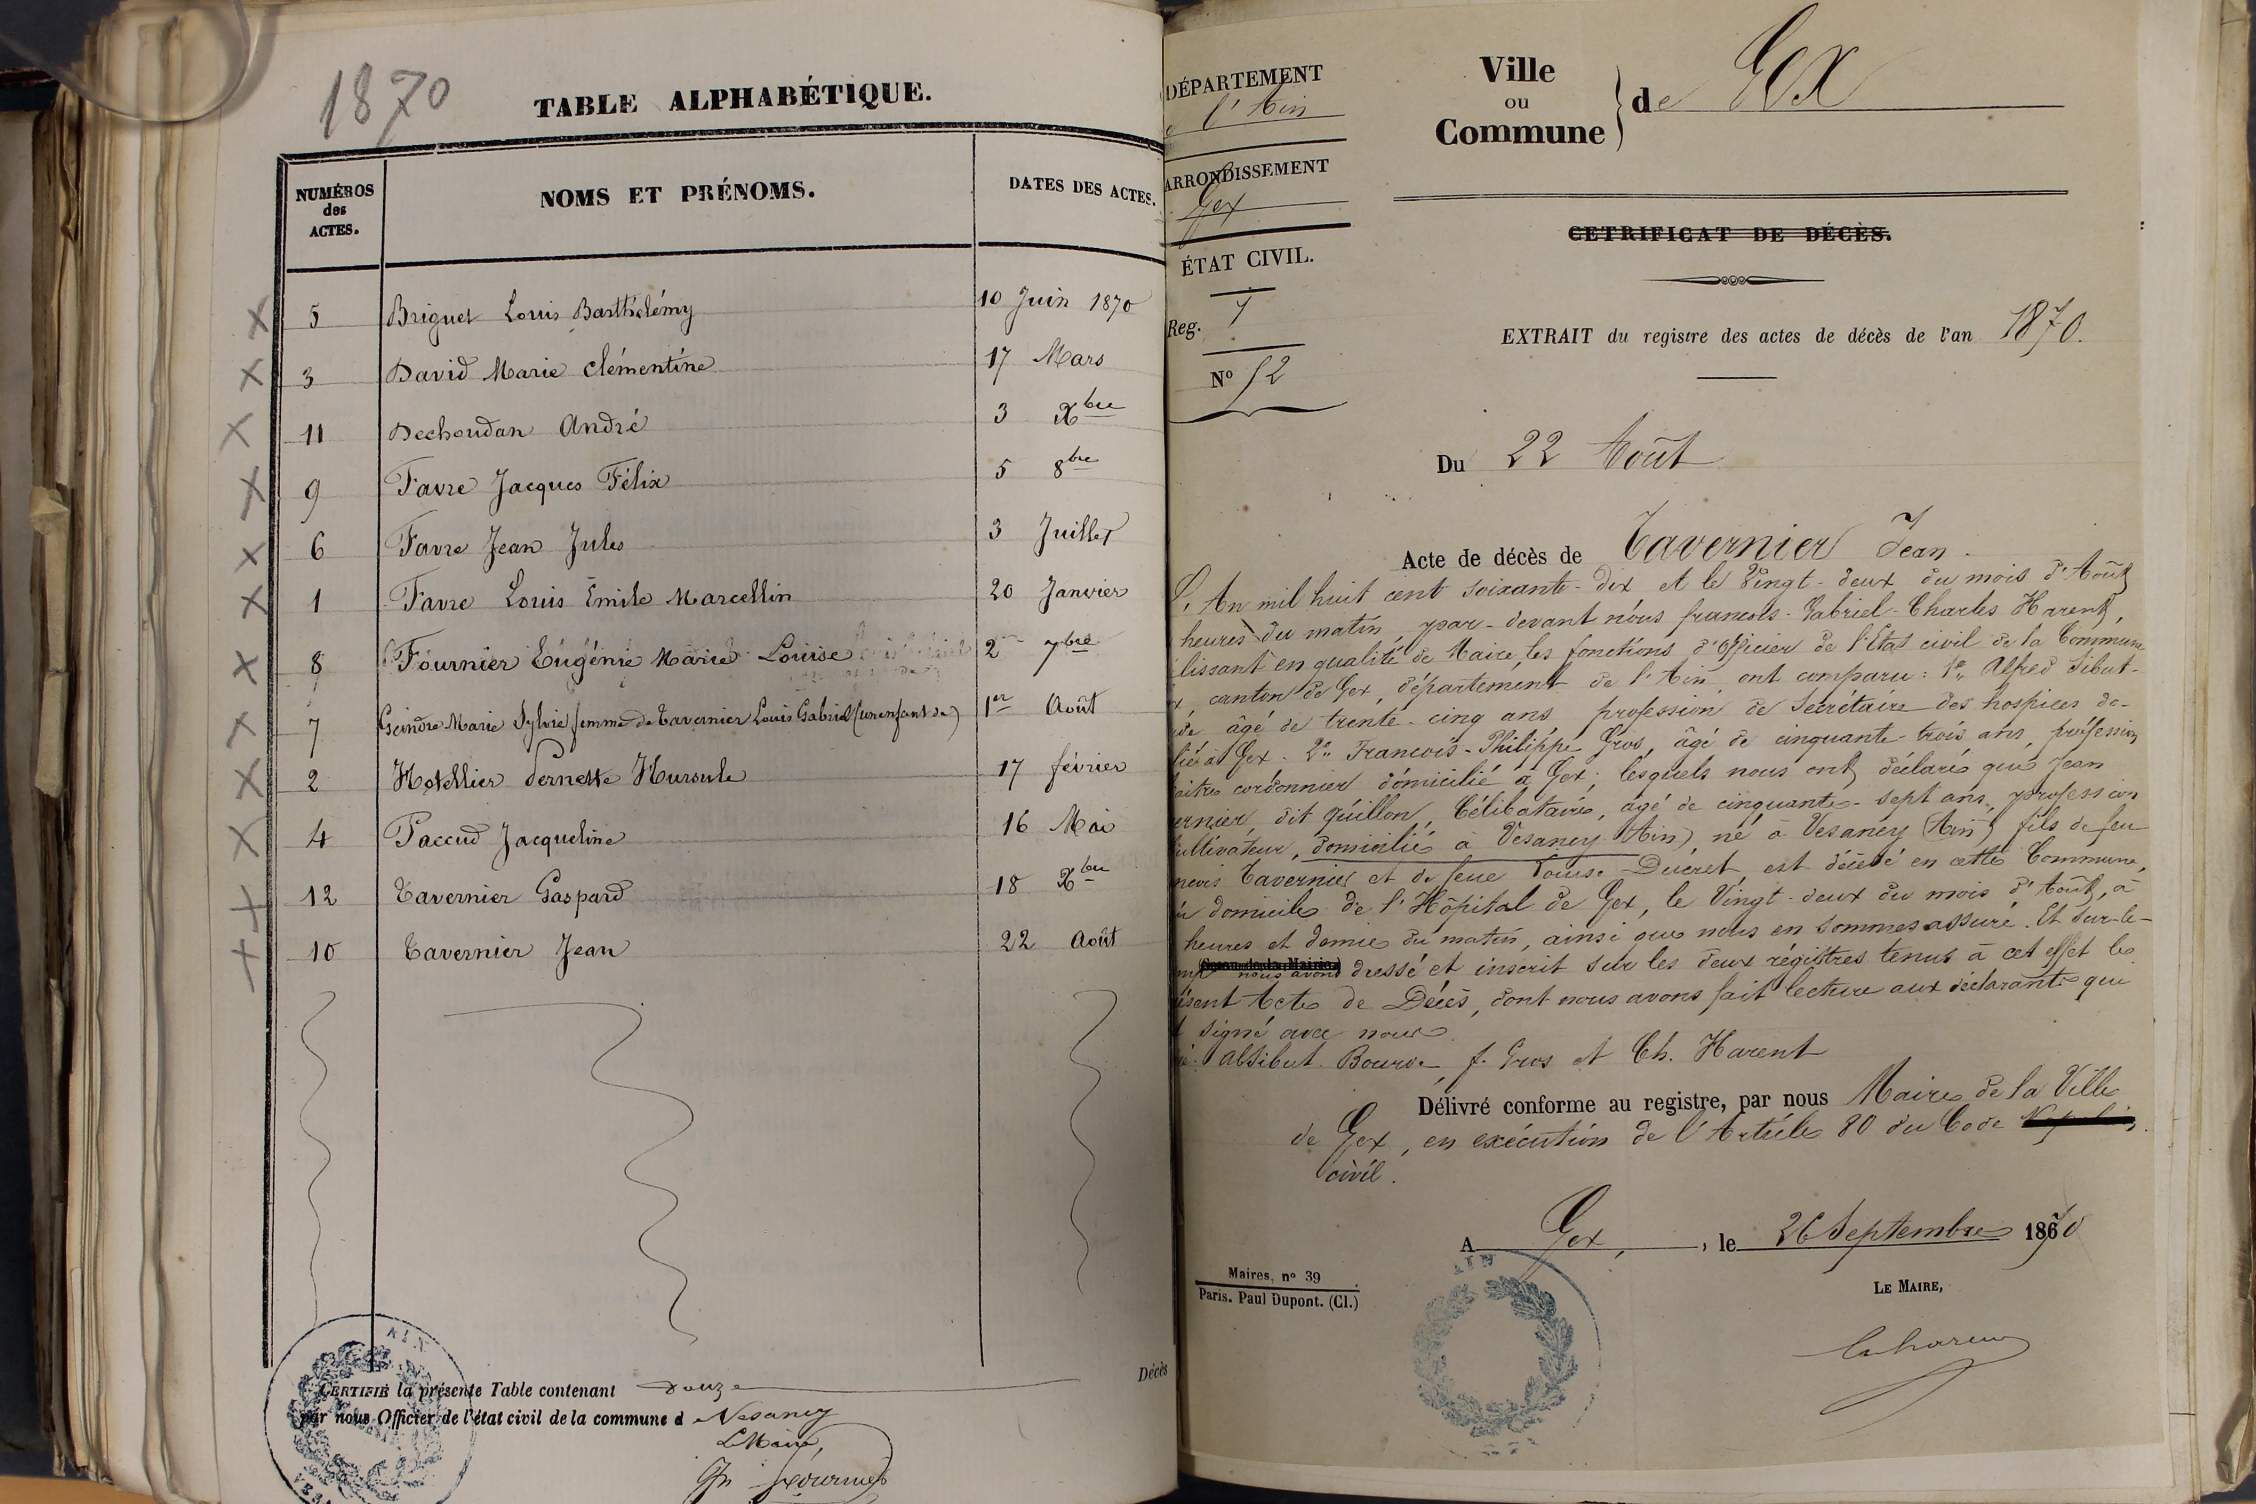 1870
TABLE ALPHABÉTIQUE.
NUMÉROS des ACTES. NOMS ET PRÉNOMS. DATES DES ACTES.
5 Briguet Louis Barthélémy 10 Juin 1870
3 David Marie Clémentine 17 Mars
11 Dechoudan André 3 Xbre
9 Favre Jacques Félix 5 8bre
6 Favre Jean Jules 3 Juillet
1 Favre Louis Émile Marcellin 20 Janvier
8 Fournier Eugénie Marie Louise 2 7bre
7 Geindre Marie Sylvie femme de Tavernier Louis Gabriel (un enfant de) 1er Août
2 Hotellier Pernette Hursule 17 février
4 Paccud Jacqueline 16 Mai
12 Tavernier Gaspard 18 Xbre
10 Tavernier Jean 22 Août
CERTIFIÉ la présente Table contenant douze Décès
par nous Officier de l'état civil de la commune d Vesancy
Le Maire,
Fournier
AIN
DÉPARTEMENT
l'Ain
ARRONDISSEMENT
Gex
ÉTAT CIVIL.
Reg. 1
No 52
Ville
ou
Commune
de Gex
CETRIFICAT DE DÉCÈS.
EXTRAIT du registre des actes de décès de l'an 1870.
Du 22 Août
Acte de décès de Tavernier Jean.
L'An mil huit cent soixante-dix et le Vingt-deux du mois d'Août
heures du matin, par-devant nous francois-Gabriel-Charles Harent,
lissant en qualité de Maire, les fonctions d'Officier de l'État civil de la Commune
x, canton de Gex, département de l'Ain, ont comparu: 1° Alfred Sibut-
âgé de trente-cinq ans, profession de Secrétaire des hospices do-
lié à Gex. 2° Francois-Philippe Gros, âgé de cinquante-trois ans, profession
aitre cordonnier domicilié à Gex; lesquels nous ont déclaré que Jean
ernier, dit quillon, Célibataire, agé de cinquante-sept ans, profession
ultivateur, domicilié à Vesancy (Ain), né à Vesancy (Ain) fils de feu
Tavernier et de feue Louise Ducret, est décédé en cette Commune,
domicile de l'Hôpital de Gex, le Vingt-deux du mois d'Août, à
heures et demie du matin, ainsi que nous en sommes assuré. Et sur-le-
(Sceau de la Mairie.)
nous avons dressé et inscrit sur les deux régistres tenus à cet effet le
ésent Acte de Décès, dont nous avons fait lecture aux déclarants qui
t signé avec nous
Sibut Bourde, f. Gros et Ch. Harent
Délivré conforme au registre, par nous Maire de la Ville
de Gex, en exécution de l'Article 80 du Code
civil.
A Gex, le 26 Septembre 1870
LE MAIRE,
Ch. Harent
Maires, no 39
Paris. Paul Dupont. (Cl.)
AIN